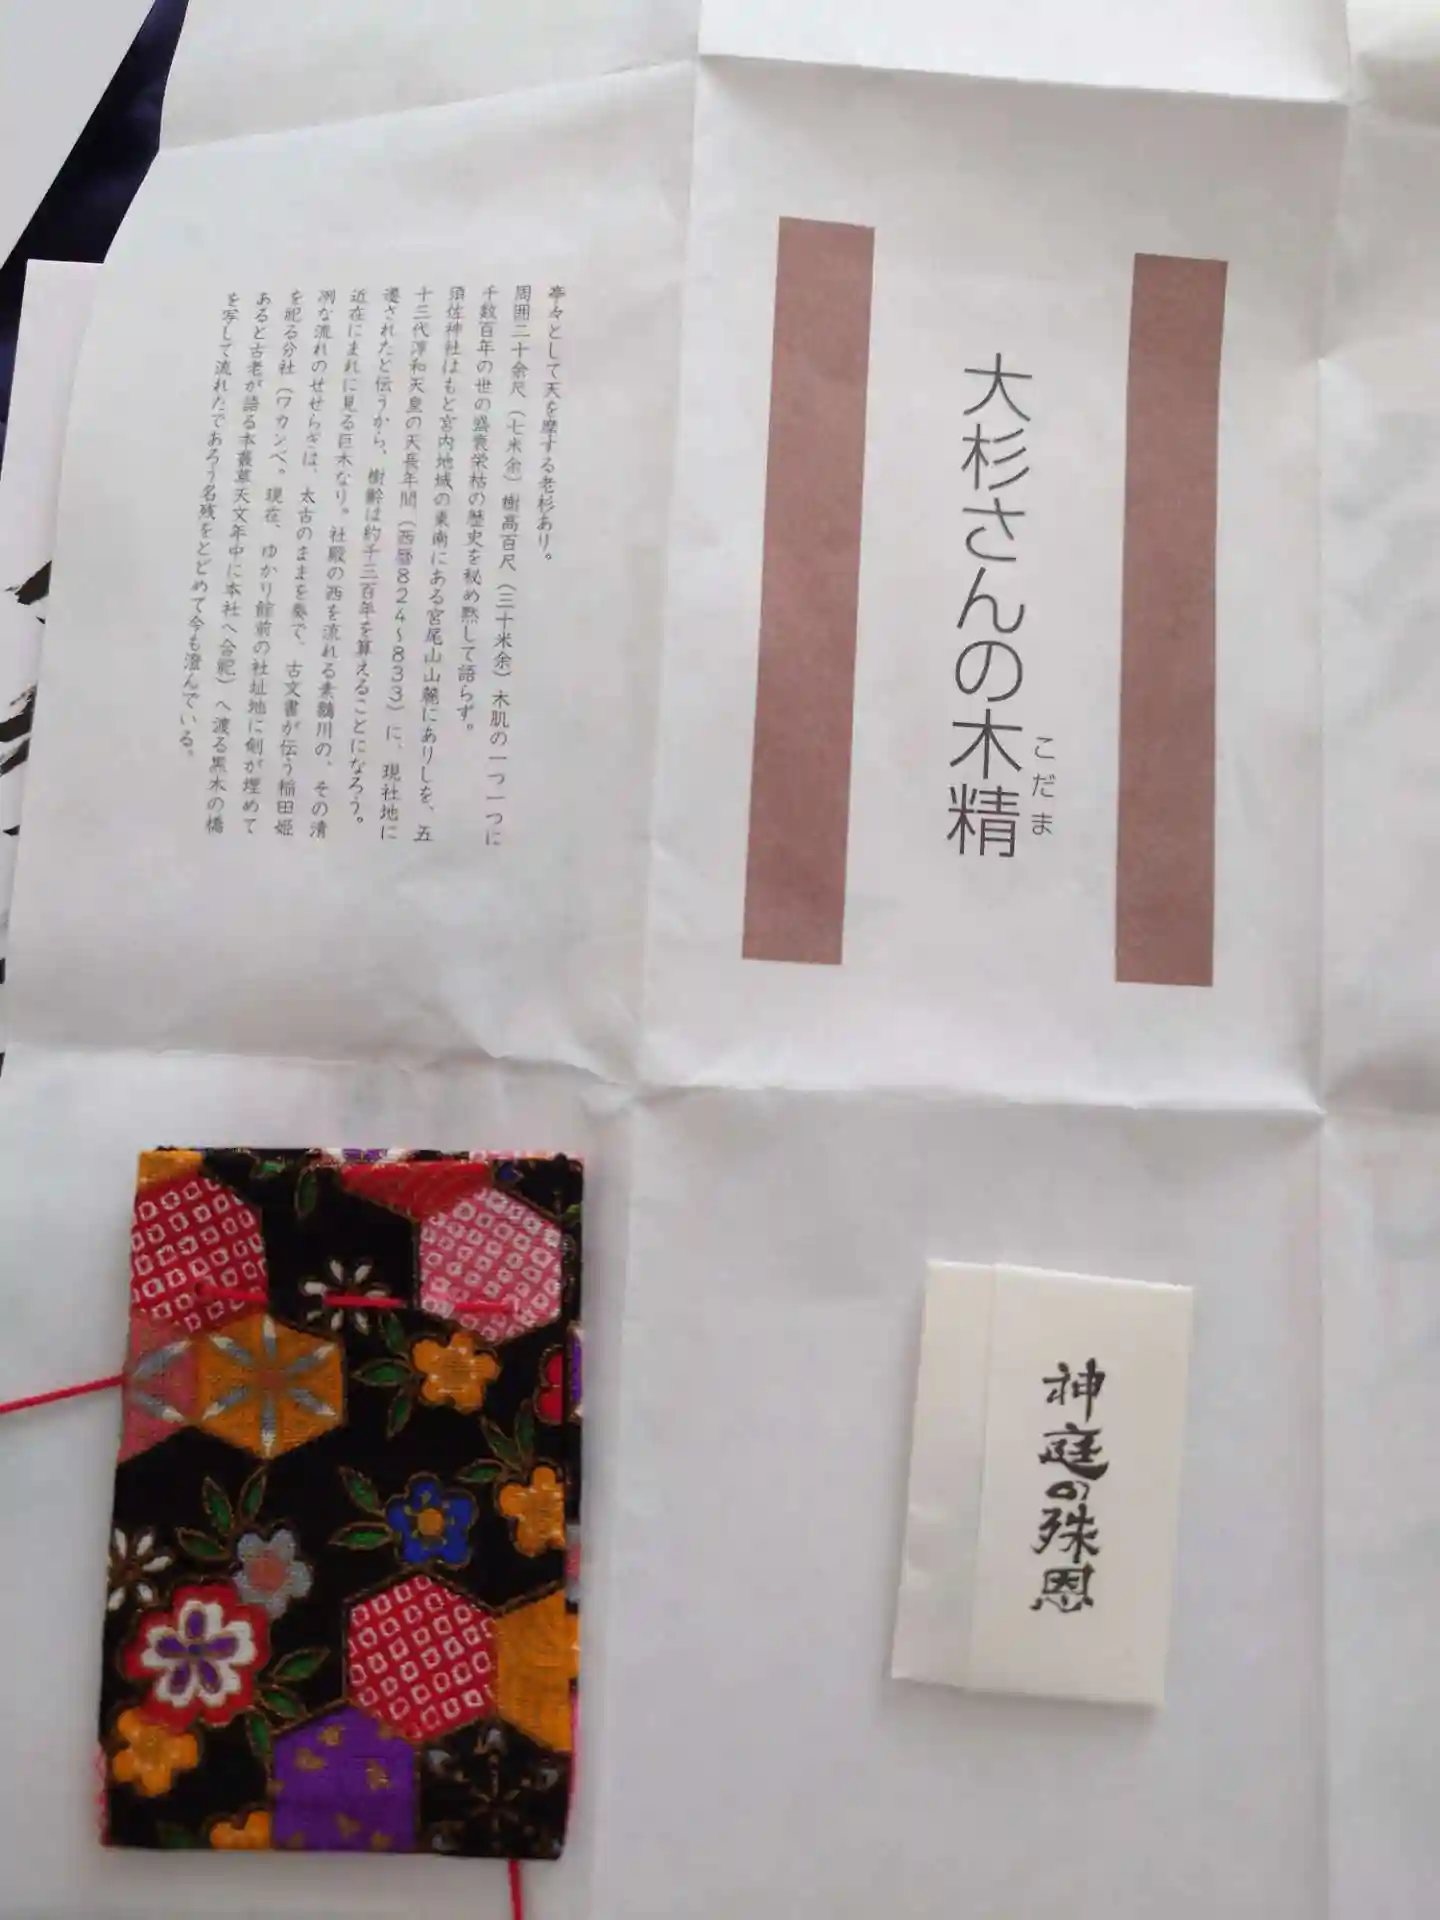 大杉さんの木精
こだま
亭々として天を摩する老杉あり。
周囲二十余尺（七米余）樹高百尺（三十米余）木肌の一つ一つに
千数百年の世の盛衰栄枯の歴史を秘め黙して語らず。
須佐神社はもと宮内地域の東南にある宮尾山山麓にありしを、五
十三代淳和天皇の天長年間（西暦８２４～８３３）に、現社地に
遷されたと伝うから、樹齢は約千三百年を算えることになろう。
近在にまれに見る巨木なり。社殿の西を流れる素鵝川の、その清
冽な流れのせせらぎは、太古のままを奏で、古文書が伝う稲田姫
を祀る分社（ワカンベ。現在、ゆかり館前の社址地に剣が埋めて
あると古老が語る本叢草天文年中に本社へ合祀）へ渡る黒木の橋
を写して流れたであろう名残をとどめて今も澄んでいる。
神庭の殊恩